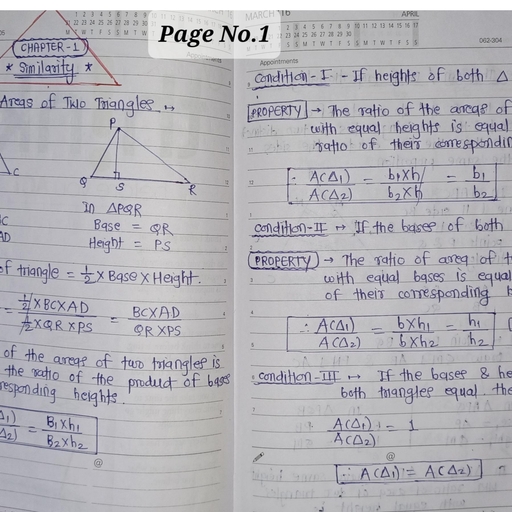 Page No.1
CHAPTER-1
* Similarity *
Areas of Two Triangles
P
Q
S
R
C
In ΔPQR
Base = QR
Height = PS
of triangle = 1/2 × Base × Height.
= 1/2 × BC × AD / 1/2 × QR × PS = BC × AD / QR × PS
of the areas of two triangles is
the ratio of the product of bases
heights.
= B1 × h1 / B2 × h2
MARCH
APRIL
062-304
Appointments
Condition-I - If heights of both Δ
PROPERTY → The ratio of the areas of
with equal heights is equal
ratio of their
∴ A(Δ1) / A(Δ2) = b1 × h / b2 × h = b1 / b2
condition-II ↦ If the bases of both
PROPERTY → The ratio of area of
with equal bases is equal
of their corresponding
∴ A(Δ1) / A(Δ2) = b × h1 / b × h2 = h1 / h2
condition-III ↦ If the bases & he
both triangles equal the
A(Δ1) / A(Δ2) = 1
∴ A(Δ1) = A(Δ2)